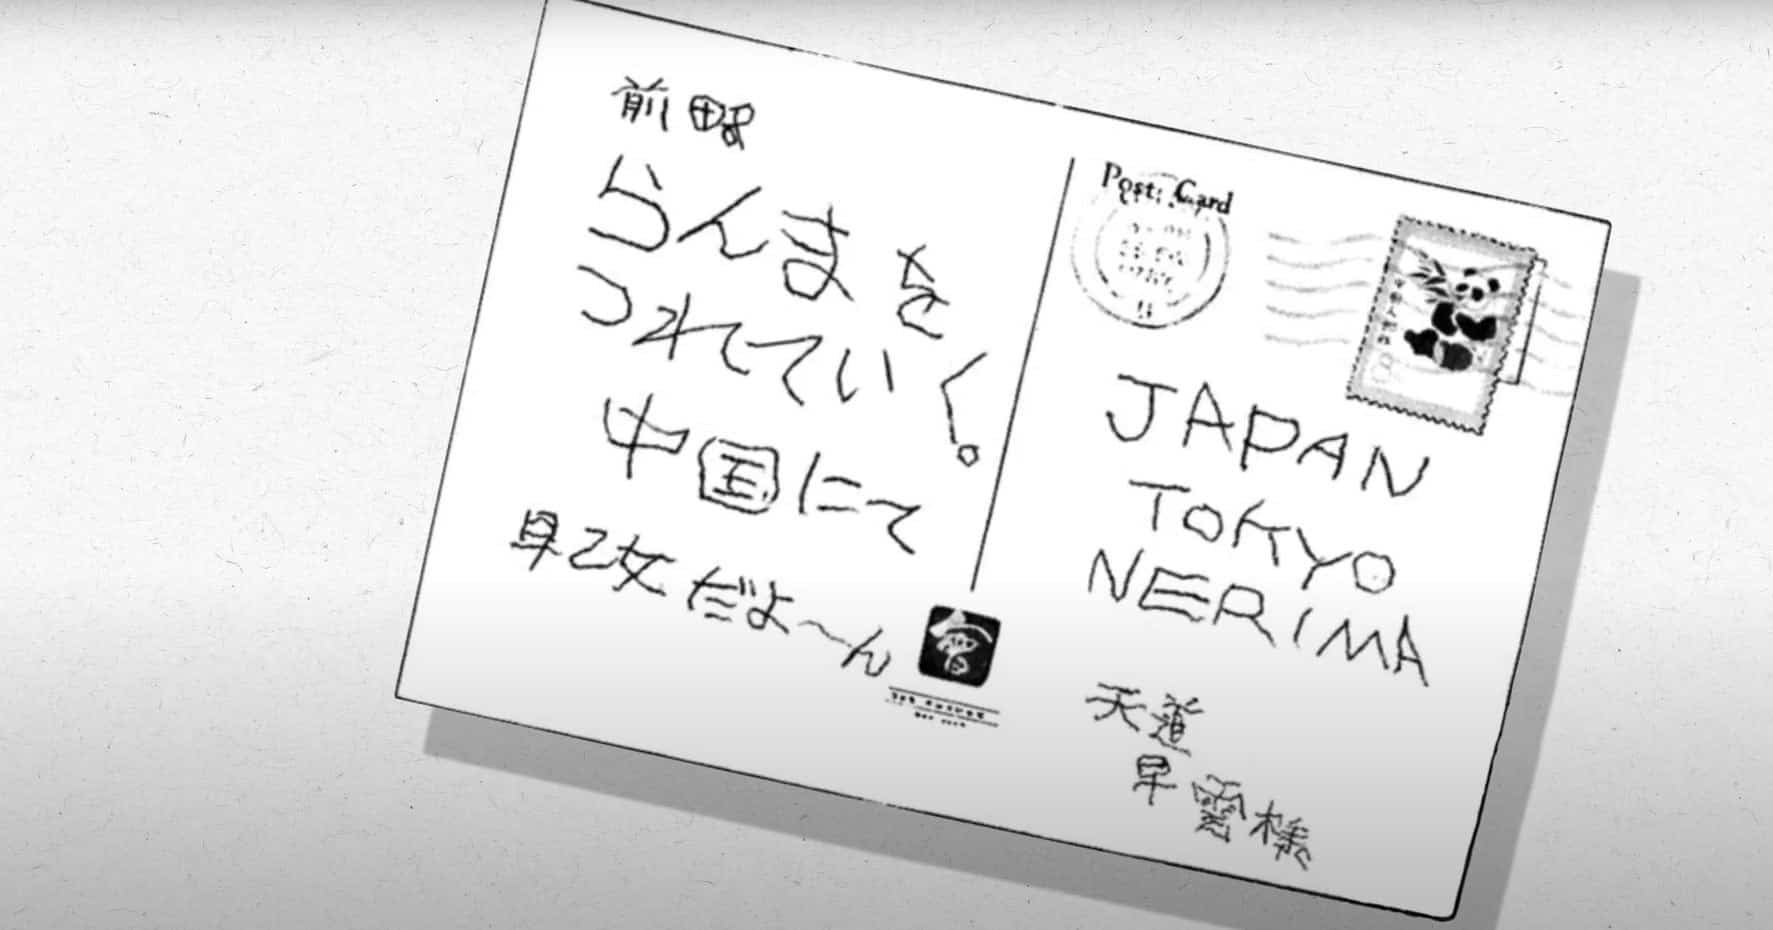 前略
らんまを
つれていく。
中国にて
早乙女だよ〜ん
Post Card
JAPAN
TOKYO
NERIMA
天道
早雲様